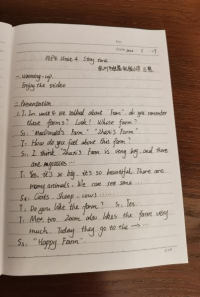 PEP4 Unit 4 Story time
- Warming-up.
Enjoy the video
2. Presentation
1. T: In unit 4 we talked about "Farm". do you remember
these farms? Look! Whose farm?
Ss: MacDonald's Farm "Zhang's Farm"
T: How do you feel about this farm?
S: I think Farm is very big, and there
are
T: Yes, it's so big. it's so beautiful. There are
many animals. We can see some
Ss: Goats. Sheep. cows ......
T: Do you like the farm? S: Yes.
T: Me, too. Zoom also likes the farm very
much. Today they go to the → ...
Ss: "Happy Farm"